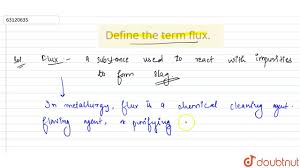 63120635
Define the term flux.
Sol. Flux :- a substance used to react with impurities
to form slag
In metallurgy, flux is a chemical cleaning agent.
flowing agent, or purifying
doubtnut